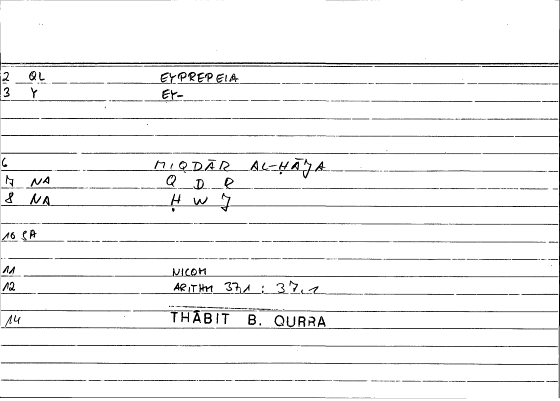 2 QL EYPREPEIA
3 Y EY-
6 MIQDĀR AL-ḤĀǦA
7 NA Q D R
8 NA Ḥ W Ǧ
10 SA
11 NICOM
12 ARITHM 37,1 : 37,1
14 THĀBIT B. QURRA